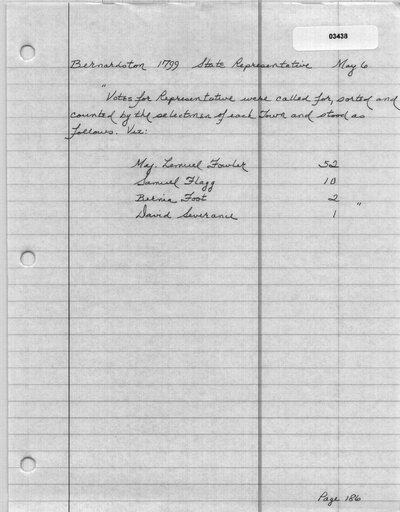 03438
Bernardston 1799 State Representative May 6
"Votes for Representative were called for, sorted and
counted by the selectmen of each Town and stood as
follows. Viz:
Maj. Lemuel Fowler 52
Samuel Flagg 10
Foot 2
David Severance 1 "
Page 186